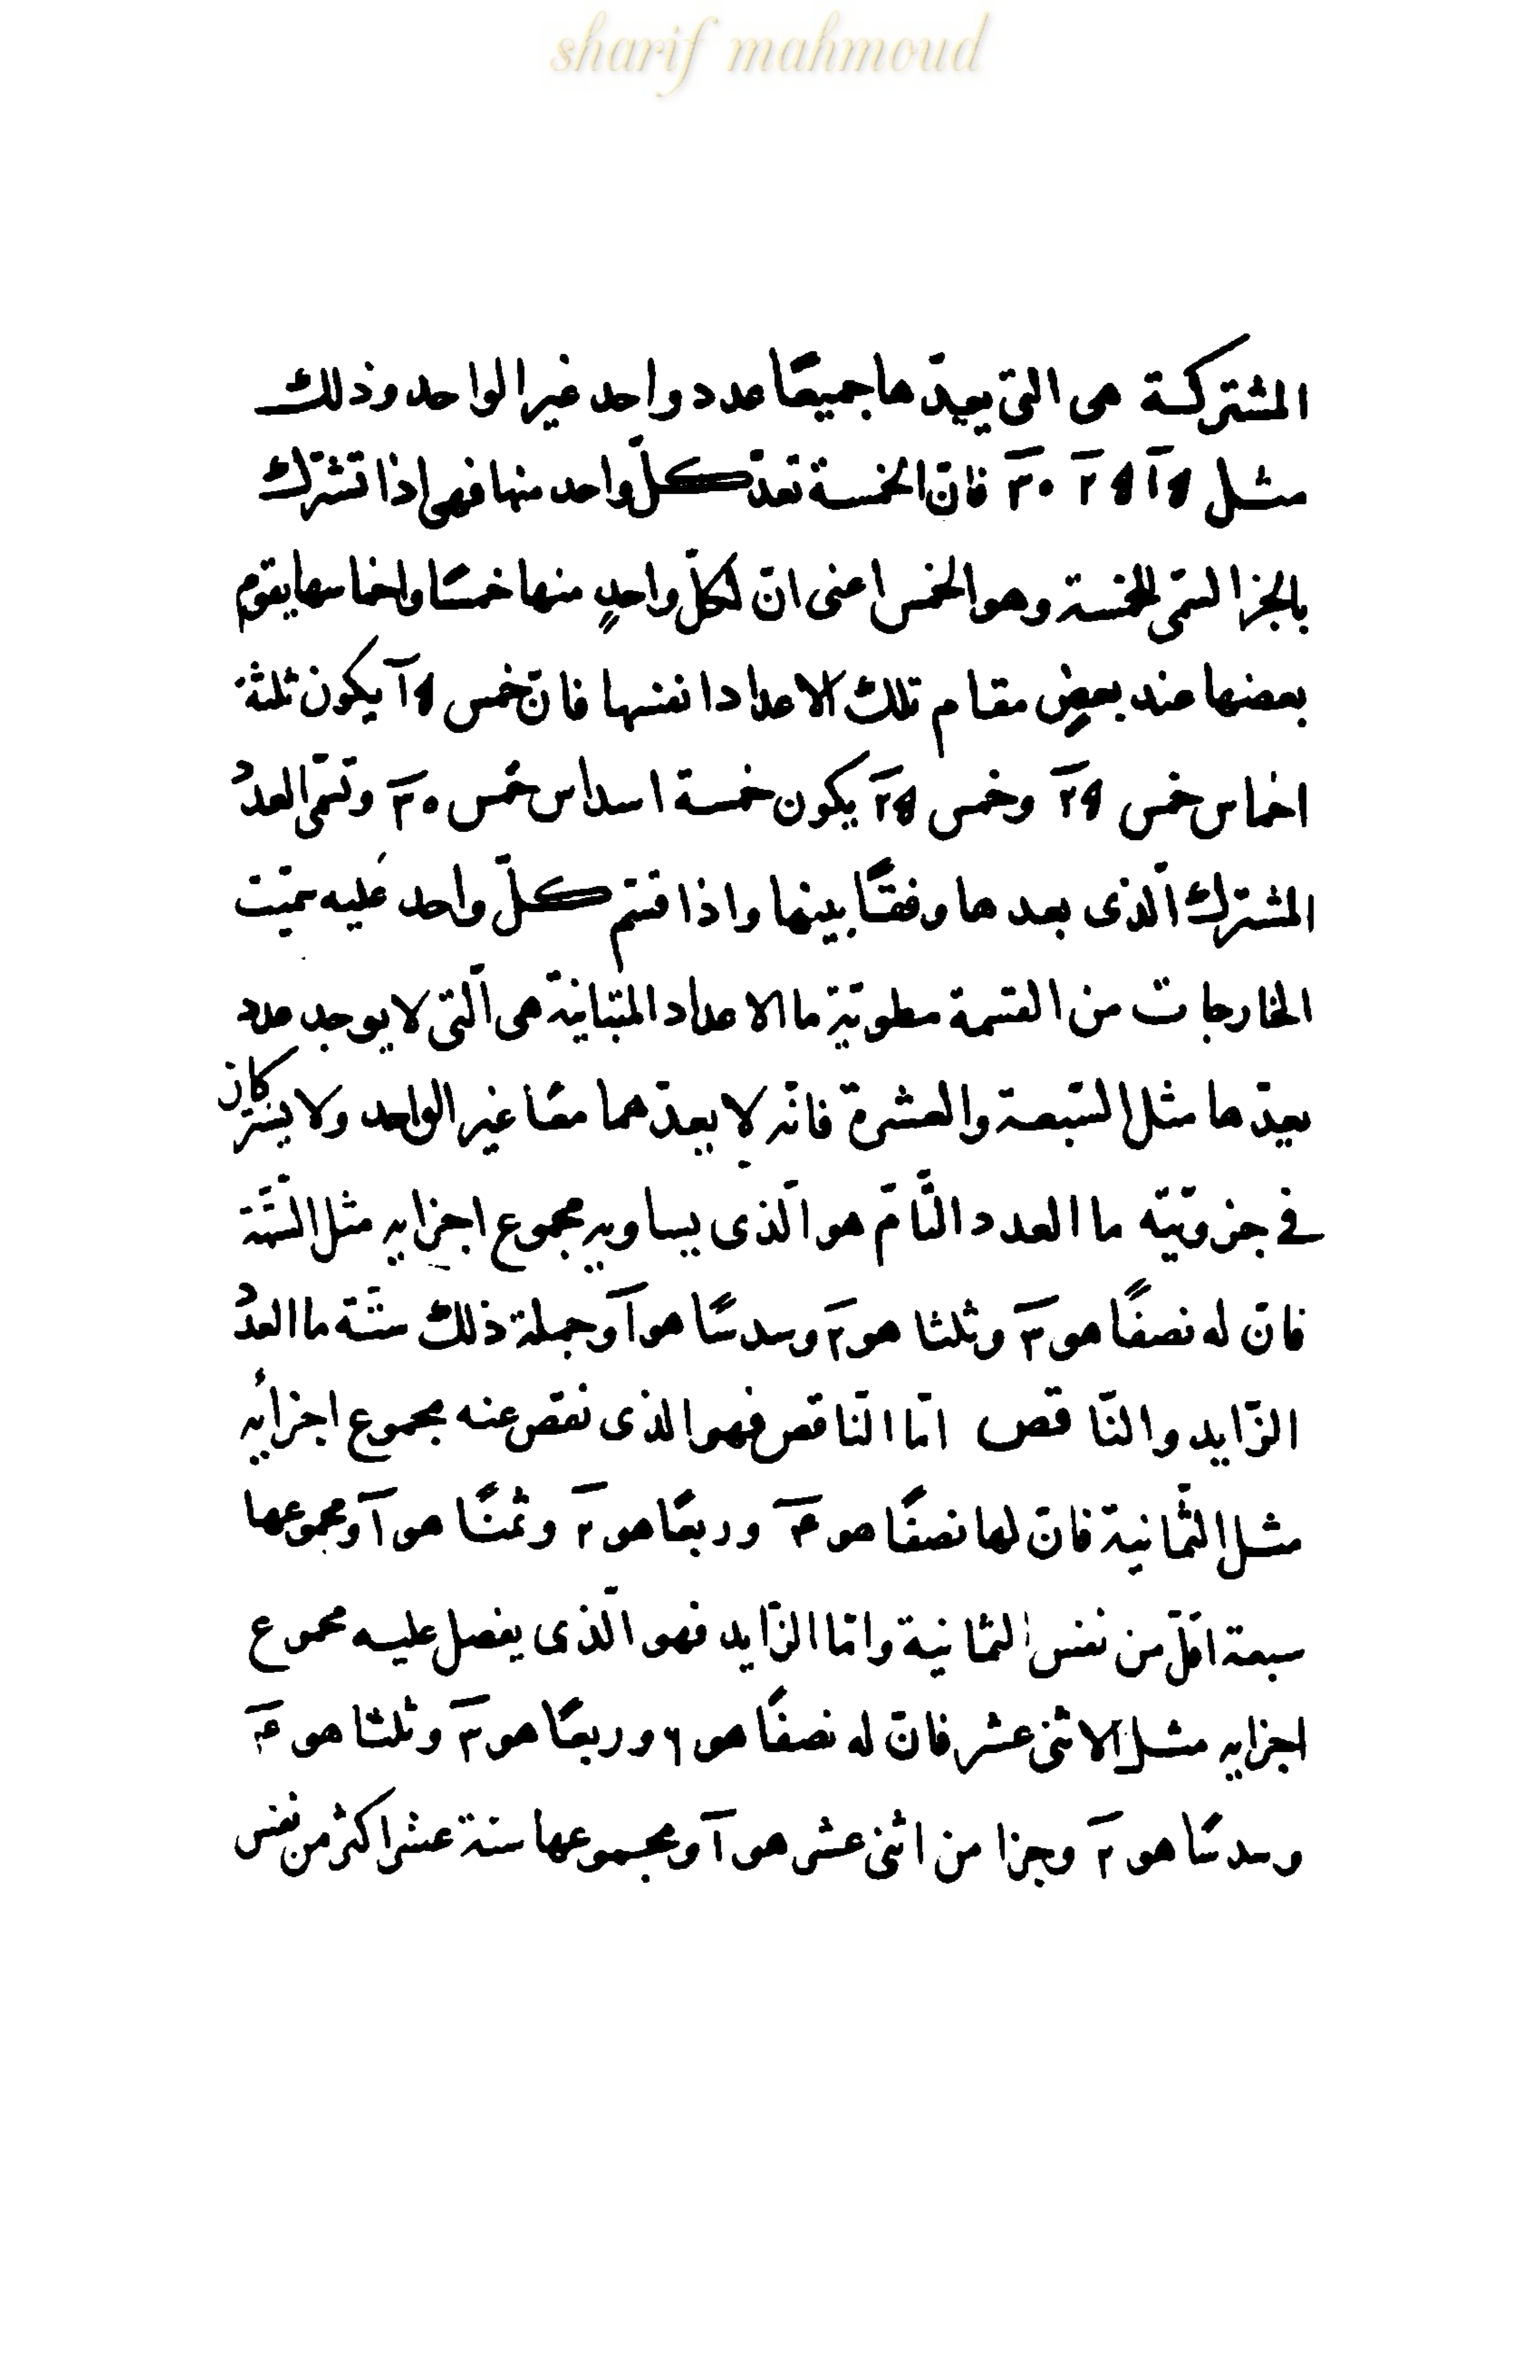 sharif mahmoud
المشتركة هى التى يعدّها جميعًا عدد واحد غير الواحد وذلك
مثل ۱۵ ۲۵ ۳۰ فانّ الخمسة تعدّ كلّ واحد منها فهى اذا تشترك
بالجزا لسّمى للخمسة وهو الخمس اعنى انّ لكلّ واحدٍ منها خمسًا واخماسها يقوم
بعضها عند بعضٍ مقام تلك الاعداد انفسها فانّ خمس ۱۵ يكون ثلثة
اخماس خمس ۲۵ وخمس ۲۵ يكون خمسة اسداس خُمس ۳۰ وتسمّى العددُ
المشترك الّذى يعدها وفقًا بينها واذا قسم كلّ واحد عَليه سمّيت
الخارجات من القسمة مطويّة ما الاعداد المتباينة هى الّتى لا يوجد عدد
يعدّها مثل السّبعة والعشرة فانّه لا يعدّهما معًا غير الواحد ولا يشتركان
فى جزويّة ما العدد التّامّ هو الّذى يساويه مجموع اجزايه مثل السّتّة
فانّ له نصفًا هو ۳ وثلثا هو ۲ وسدسًا هو ۱ وجملة ذلك ستّة ما العددُ
الزّايد والنّاقص امّا النّاقص فهو الذى نقص عنه مجموع اجزائه
مثل الثّمانية فانّ لها نصفًا هو ۴ وربعًا هو ۲ وثمنًا هو ۱ ومجموعها
سبعة اقلّ من نفس الثمانية وامّا الزّايد فهو الّذى يفضل عليه مجموع
اجزايه مثل الاثنى عشر فانّ له نصفًا هو ٦ وربعًا هو ۳ وثلثا هو ۴
وسدسًا هو ۲ وجزا من اثنى عشر هو ۱ ومجموعها ستة عشر اكثر من نفس